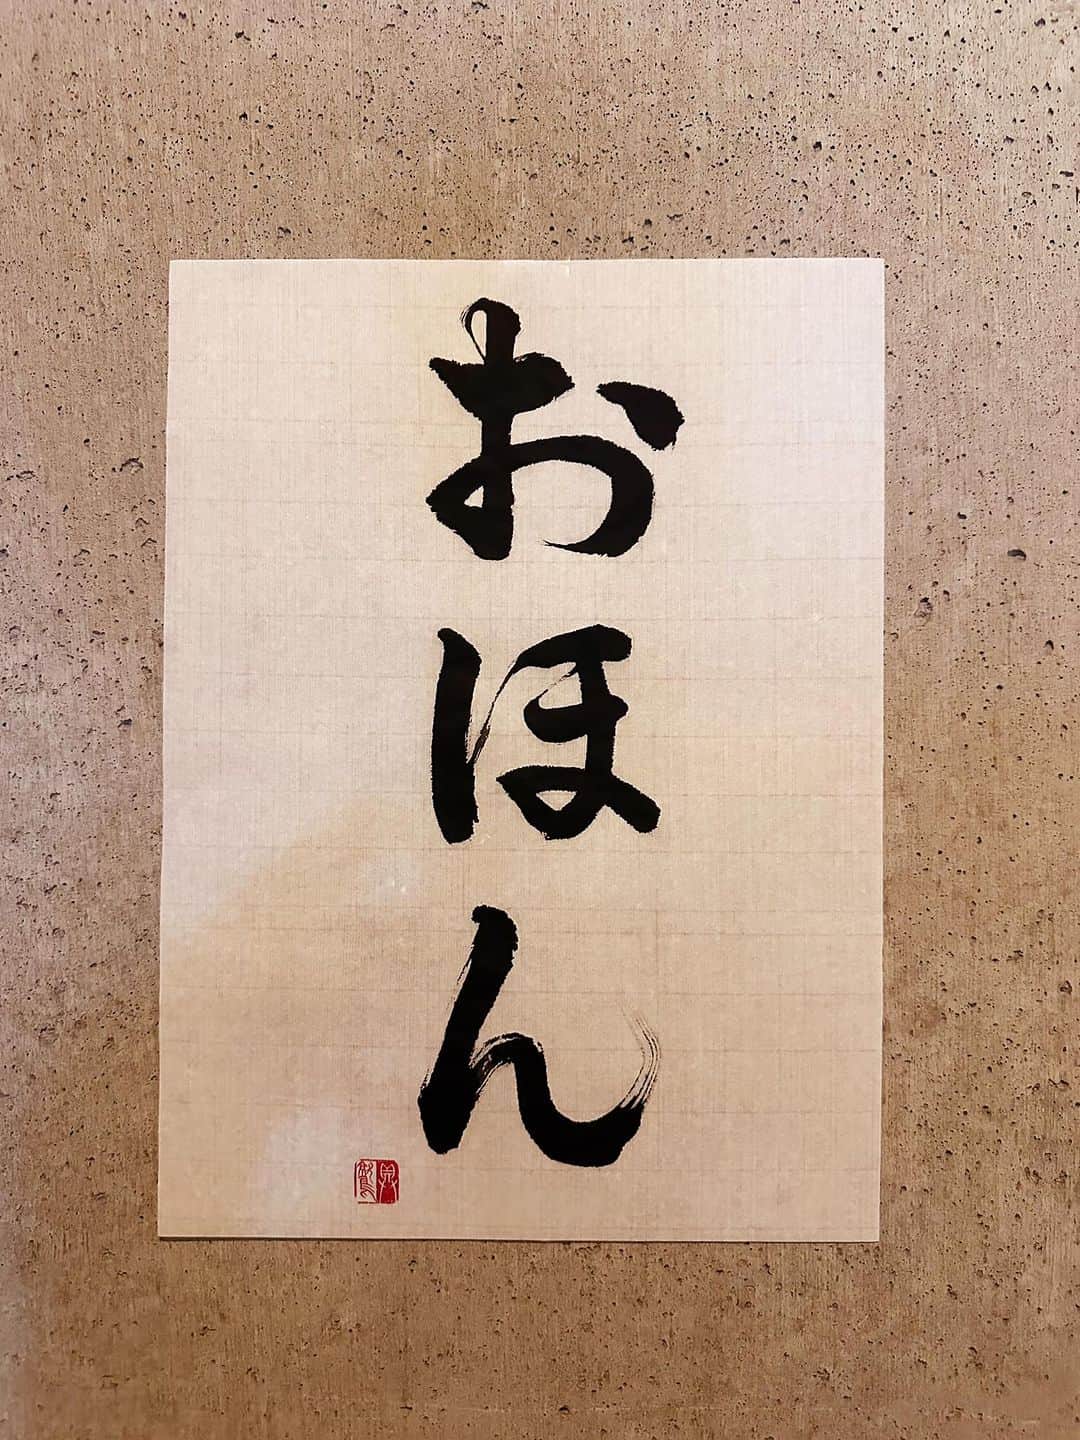 おほん